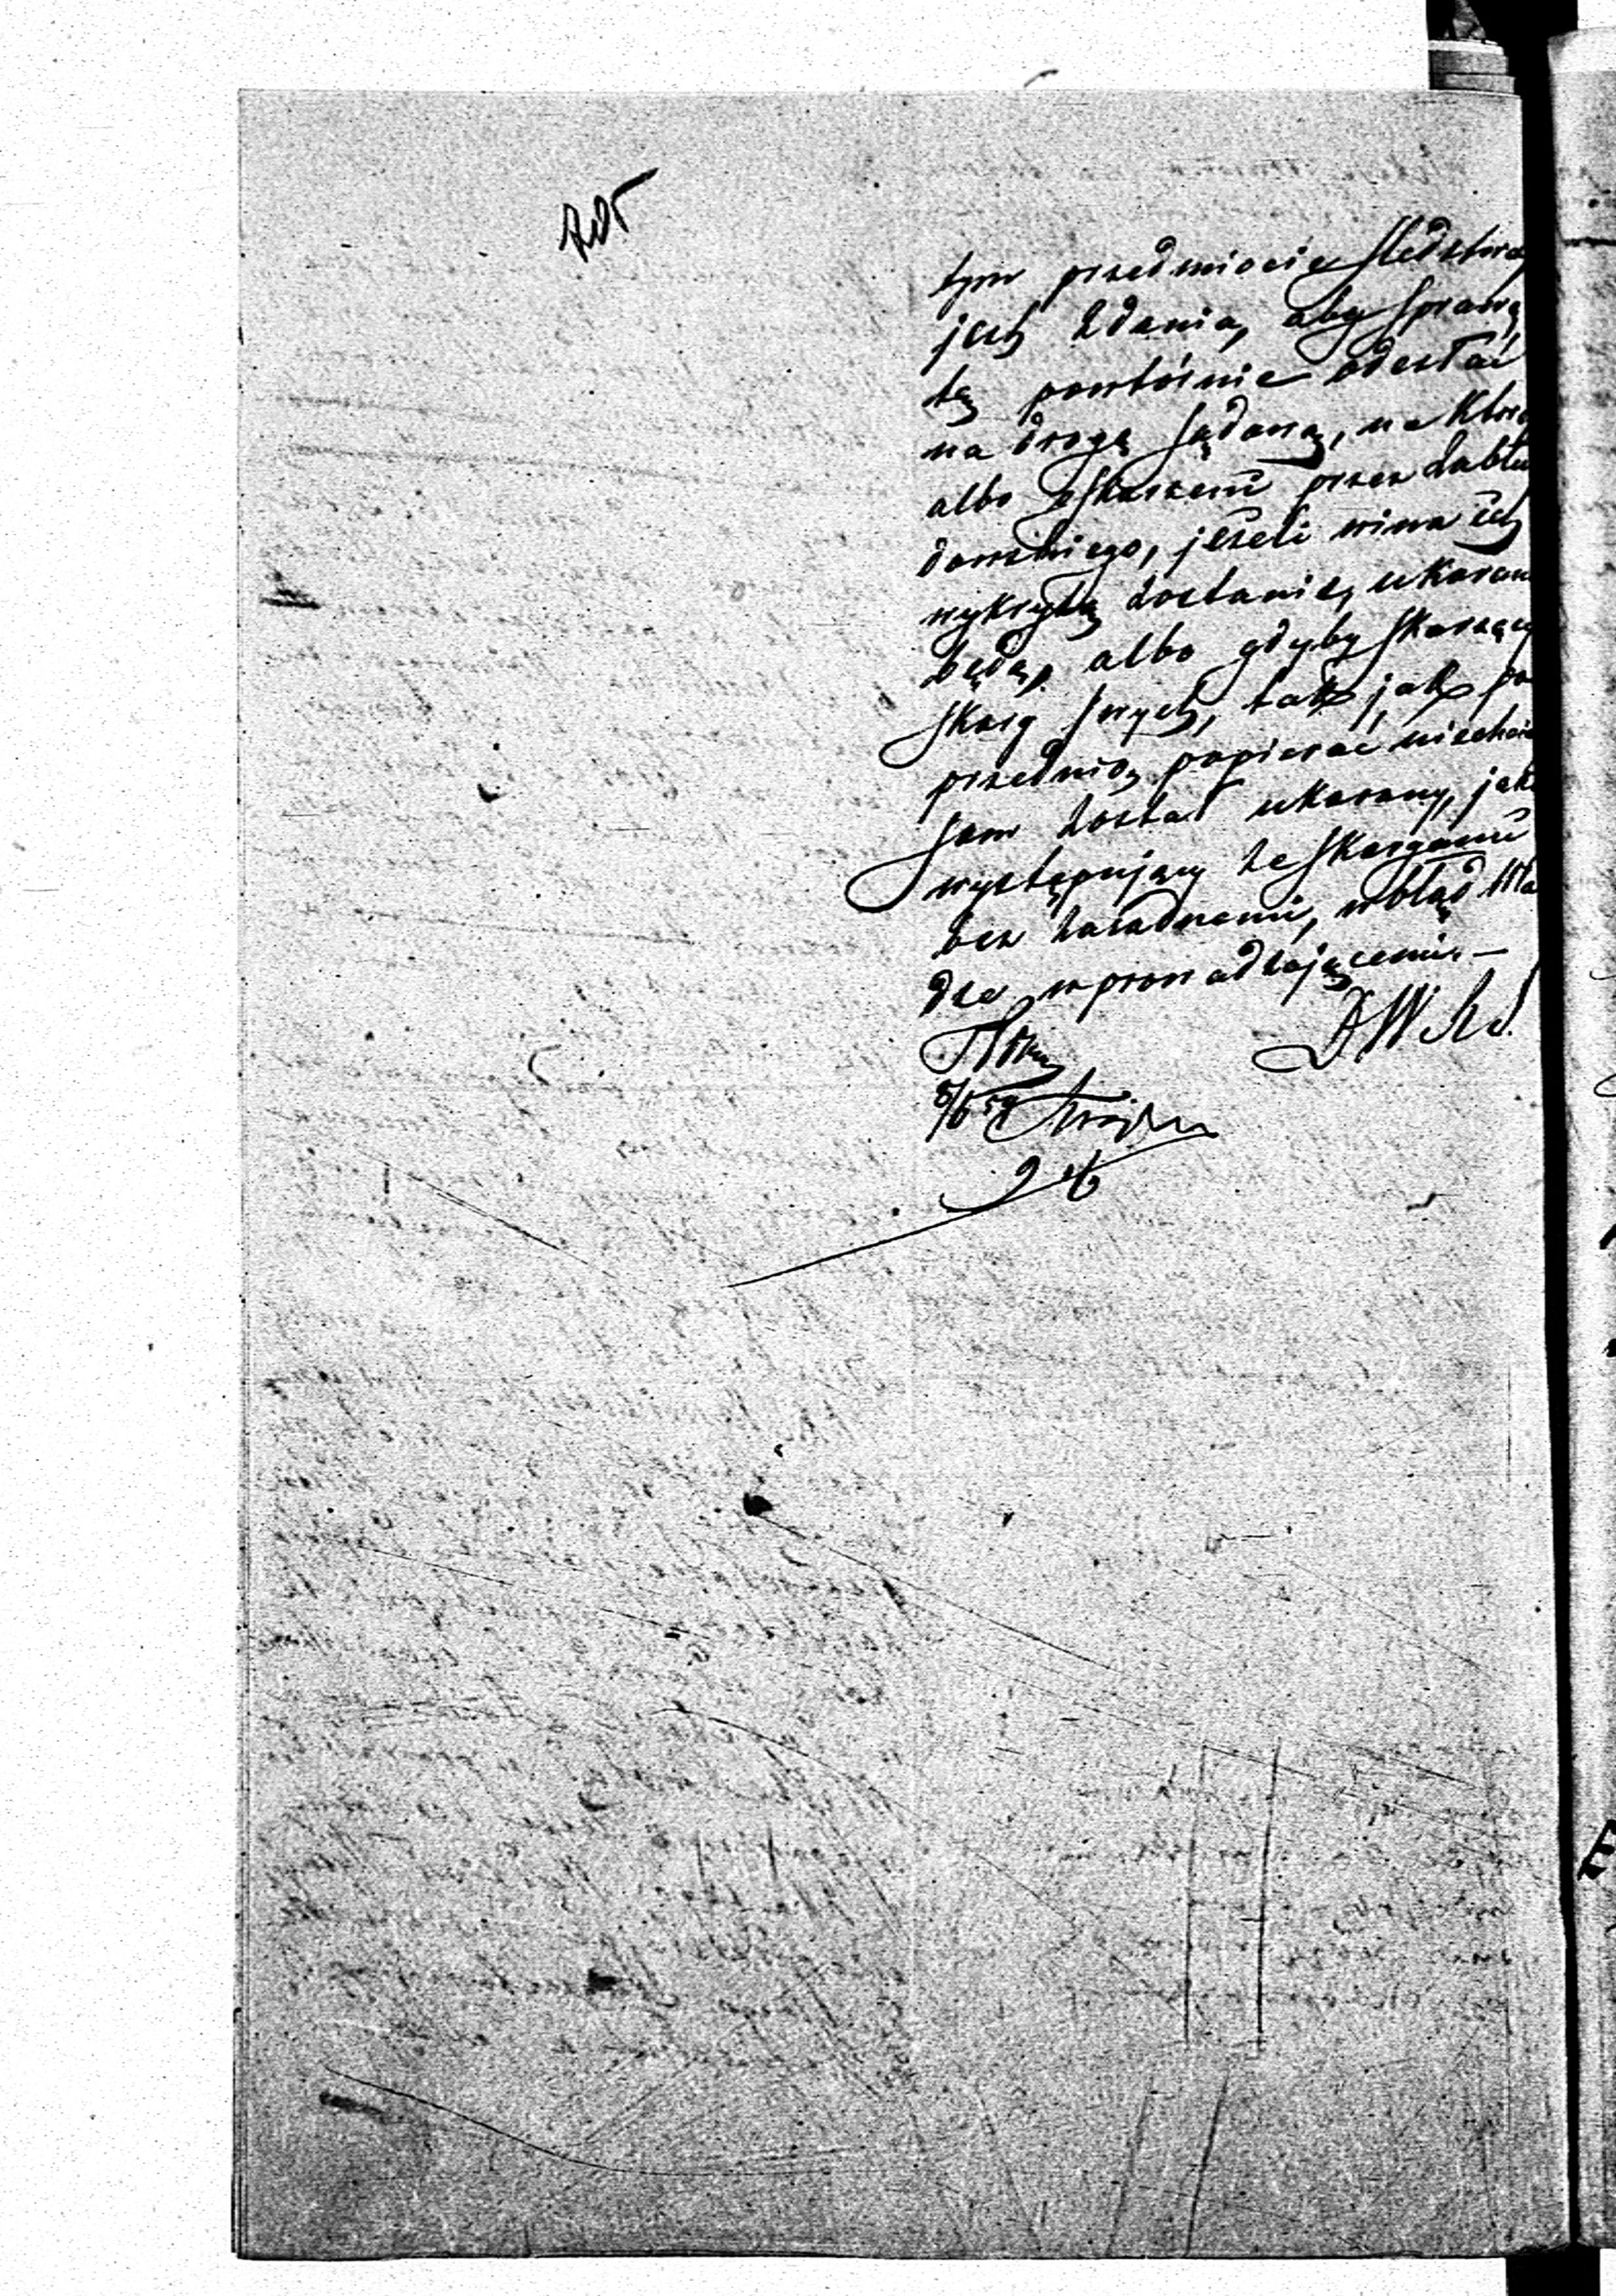 tym przedmiocie śledztwa
jest zdania, aby sprawę
tę powtórnie odesłać
na drogę sądową, na któr
albo oskarzeni przez Zabłu
dowskiego, jeżeli wina ich
wykrytą zostanie, ukaran
będą, albo gdyby skarżący
skarg swych, tak jak po
przednio, popierać niechciał
sam został ukarany, jak
występujący ze skargami
bez zasadnemi, w błąd Wła
dze wprowadzającemi. —